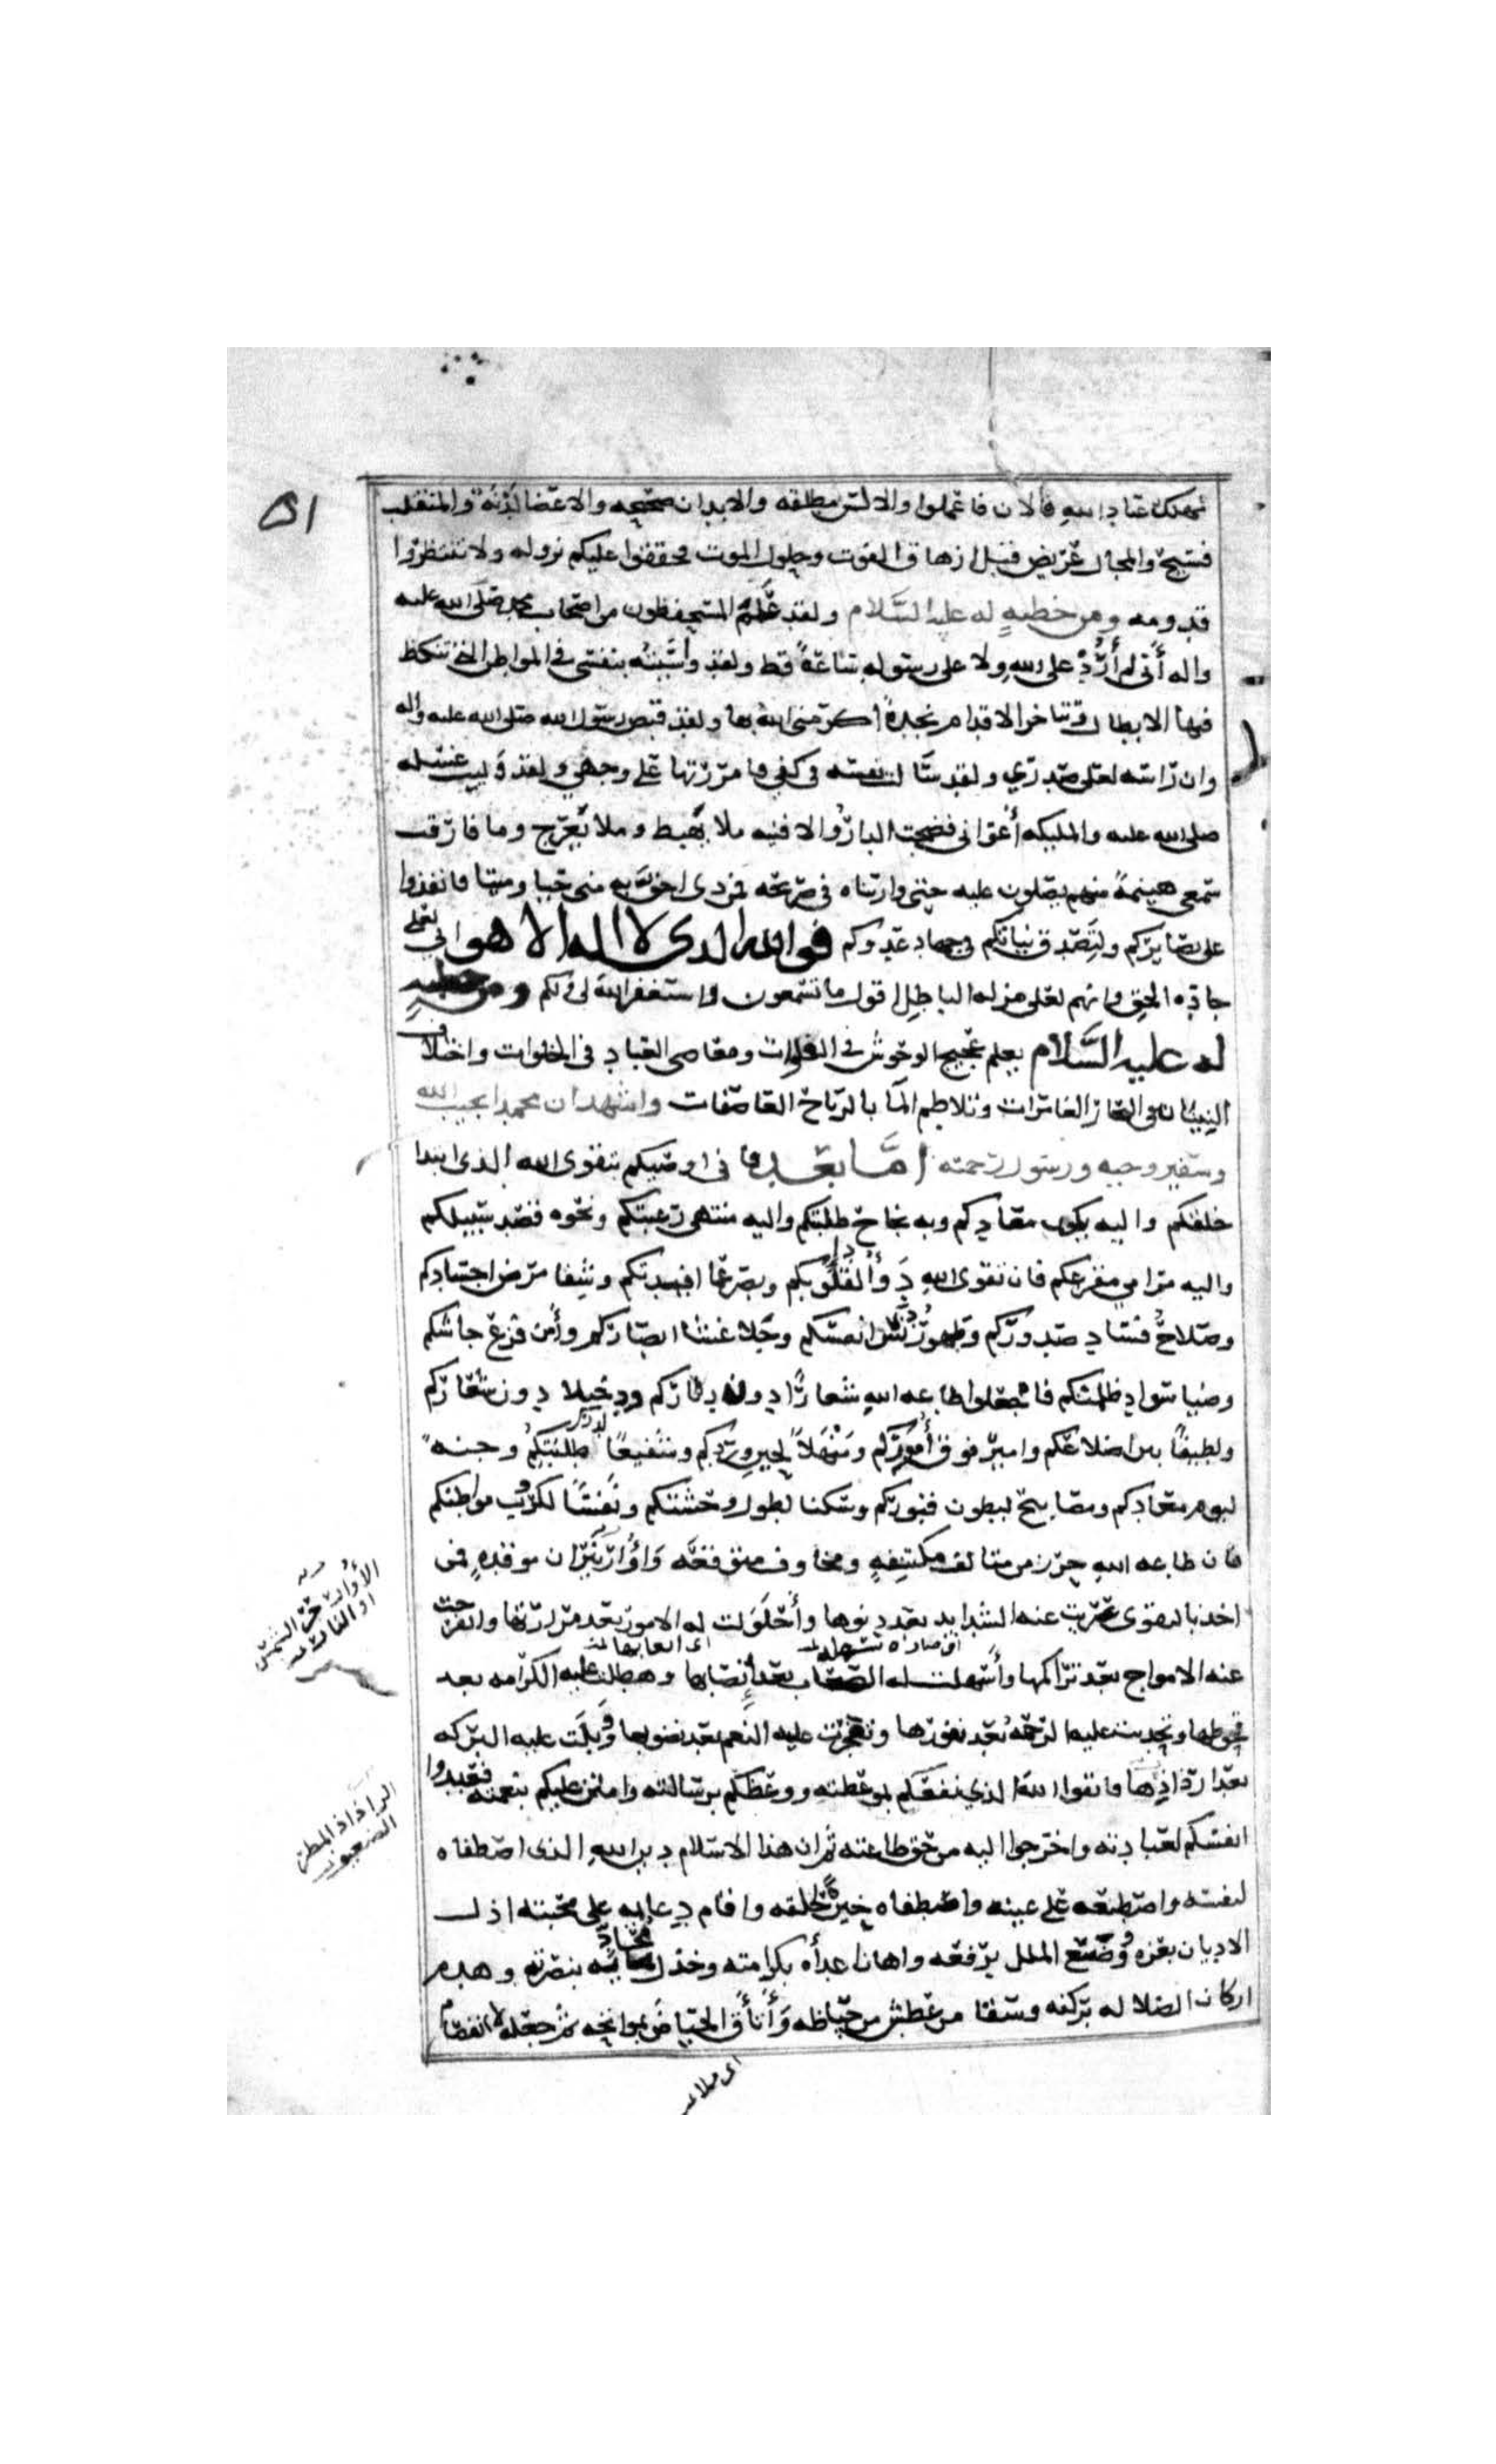 مهلك عباد الله فالان فاعملوا والالسن مطلقه والابدان صحيحه والاعضا لدنة والمنقلب
فسيح والمجال عريض قبل ازهاق الفوت وحلول الموت فحققوا عليكم نزوله ولا تنتظروا
قدومه ومن خطبة له عليه السلام ولقد علم المستحفظون من اصحاب محمد صلى الله عليه
واله أني لم أرد على الله ولا على رسوله ساعة قط ولقد واسيته بنفسي في المواطن التي تنكص
فيها الابطال وتتاخر الاقدام نجدة اكرمني الله بها ولقد قبض رسول الله صلى الله عليه واله
وان راسه لعلى صدري ولقد سالت نفسه في كفي فامررتها على وجهي ولقد وليت غسله
صلى الله عليه والمليكه أعواني فضجت الدار والافنيه ملا يهبط وملا يعرج وما فارقت
سمعي هينمة منهم يصلون عليه حتى واريناه في ضريحه فمن ذى احق به مني حيا وميتا فانفذوا
على بصايركم ولتصدق نياتكم في جهاد عدوكم فوالله الذى لا اله الا هو اني لعلى
جاده الحق وانهم لعلى مزله الباطل اقول ما تسمعون واستغفر الله لي ولكم ومن خطبة
له عليه السلام يعلم عجيج الوحوش في الفلوات ومعاصى العباد في الخلوات واختلاف
النينان في البحار الغامرات وتلاطم المآ بالرياح العاصفات واشهد ان محمدا نجيب الله
وسفير وحيه ورسول رحمته اما بعد فاني اوصيكم بتقوى الله الذى ابتدا
خلقكم واليه يكون معادكم وبه نجاح طلبتكم واليه منتهى رغبتكم ونحوه قصد سبيلكم
واليه مرامي مفزعكم فان تقوى الله دوآء قلوبكم وبصر عما افيدتكم وشفا مرض اجسادكم
وصلاح فساد صدوركم وطهور دنس انفسكم وجلا غشا ابصاركم وأمن فزع جاشكم
وضيا سواد ظلمتكم فاجعلوا طاعه الله شعارا دون دثاركم ودخيلا دون شعاركم
ولطيفا بين اضلاعكم واميرا فوق أموركم ومنهلا لحين وردكم وشفيعا لدرك طلبتكم وجنه
ليوم معادكم ومصابيح لبطون قبوركم وسكنا لطول وحشتكم ونفسا لكرب مواطنكم
فان طاعه الله حرز من متالف مكتنفه ومخاوف متوقعه وأوار نيران موقدة فمن
اخذ بالتقوى عزبت عنه الشدايد بعد دنوها وأحلولت له الامور بعد مرارتها وانفرجت
عنه الامواج بعد تراكمها وأسهلت له الصعاب بعد إنصابها وهطلت عليه الكرامه بعد
اى صارة سهله
اى اتعابها
قحوطها وتحدبت عليه الرحمة بعد نفورها وتفجرت عليه النعم بعد نضوبها ووبلت عليه البركه
بعد ارذاذها فاتقوا الله الذي نفعكم بموعظته ووعظكم برسالته وامتن عليكم بنعمته فعبدوا
انفسكم لعبادته واخرجوا اليه من حق طاعته ثم ان هذا الاسلام دين الله الذى اصطفاه
لنفسه واصطنعه على عينه واصطفاه خيرة خلقه واقام دعايمه على محبته اذل
الاديان بعزه ووضع الملل برفعه واهان اعدأه بكرامته وخذل محاديه بنصره وهدم
اركان الضلاله بركنه وسقا من عطش من حياظه وأتأق الحياض بمواتحه ثم جعله لا انفصام
الأوار حر الشمس
او النار
الرذاذ المطر
الضعيف
اى ملا